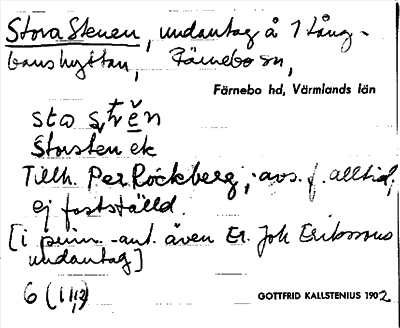 Stora Stenen, undantag å 1 Lång-
banshyttan, Färnebo sn,
Färnebo hd, Värmlands län
Storsten ek
Tillh. Per Rockberg, avs. f. alltid,
ej fastställd.
[i prim.-ant. även Er. Joh Erikssons
undantag]
6 (11,12)
GOTTFRID KALLSTENIUS 1902